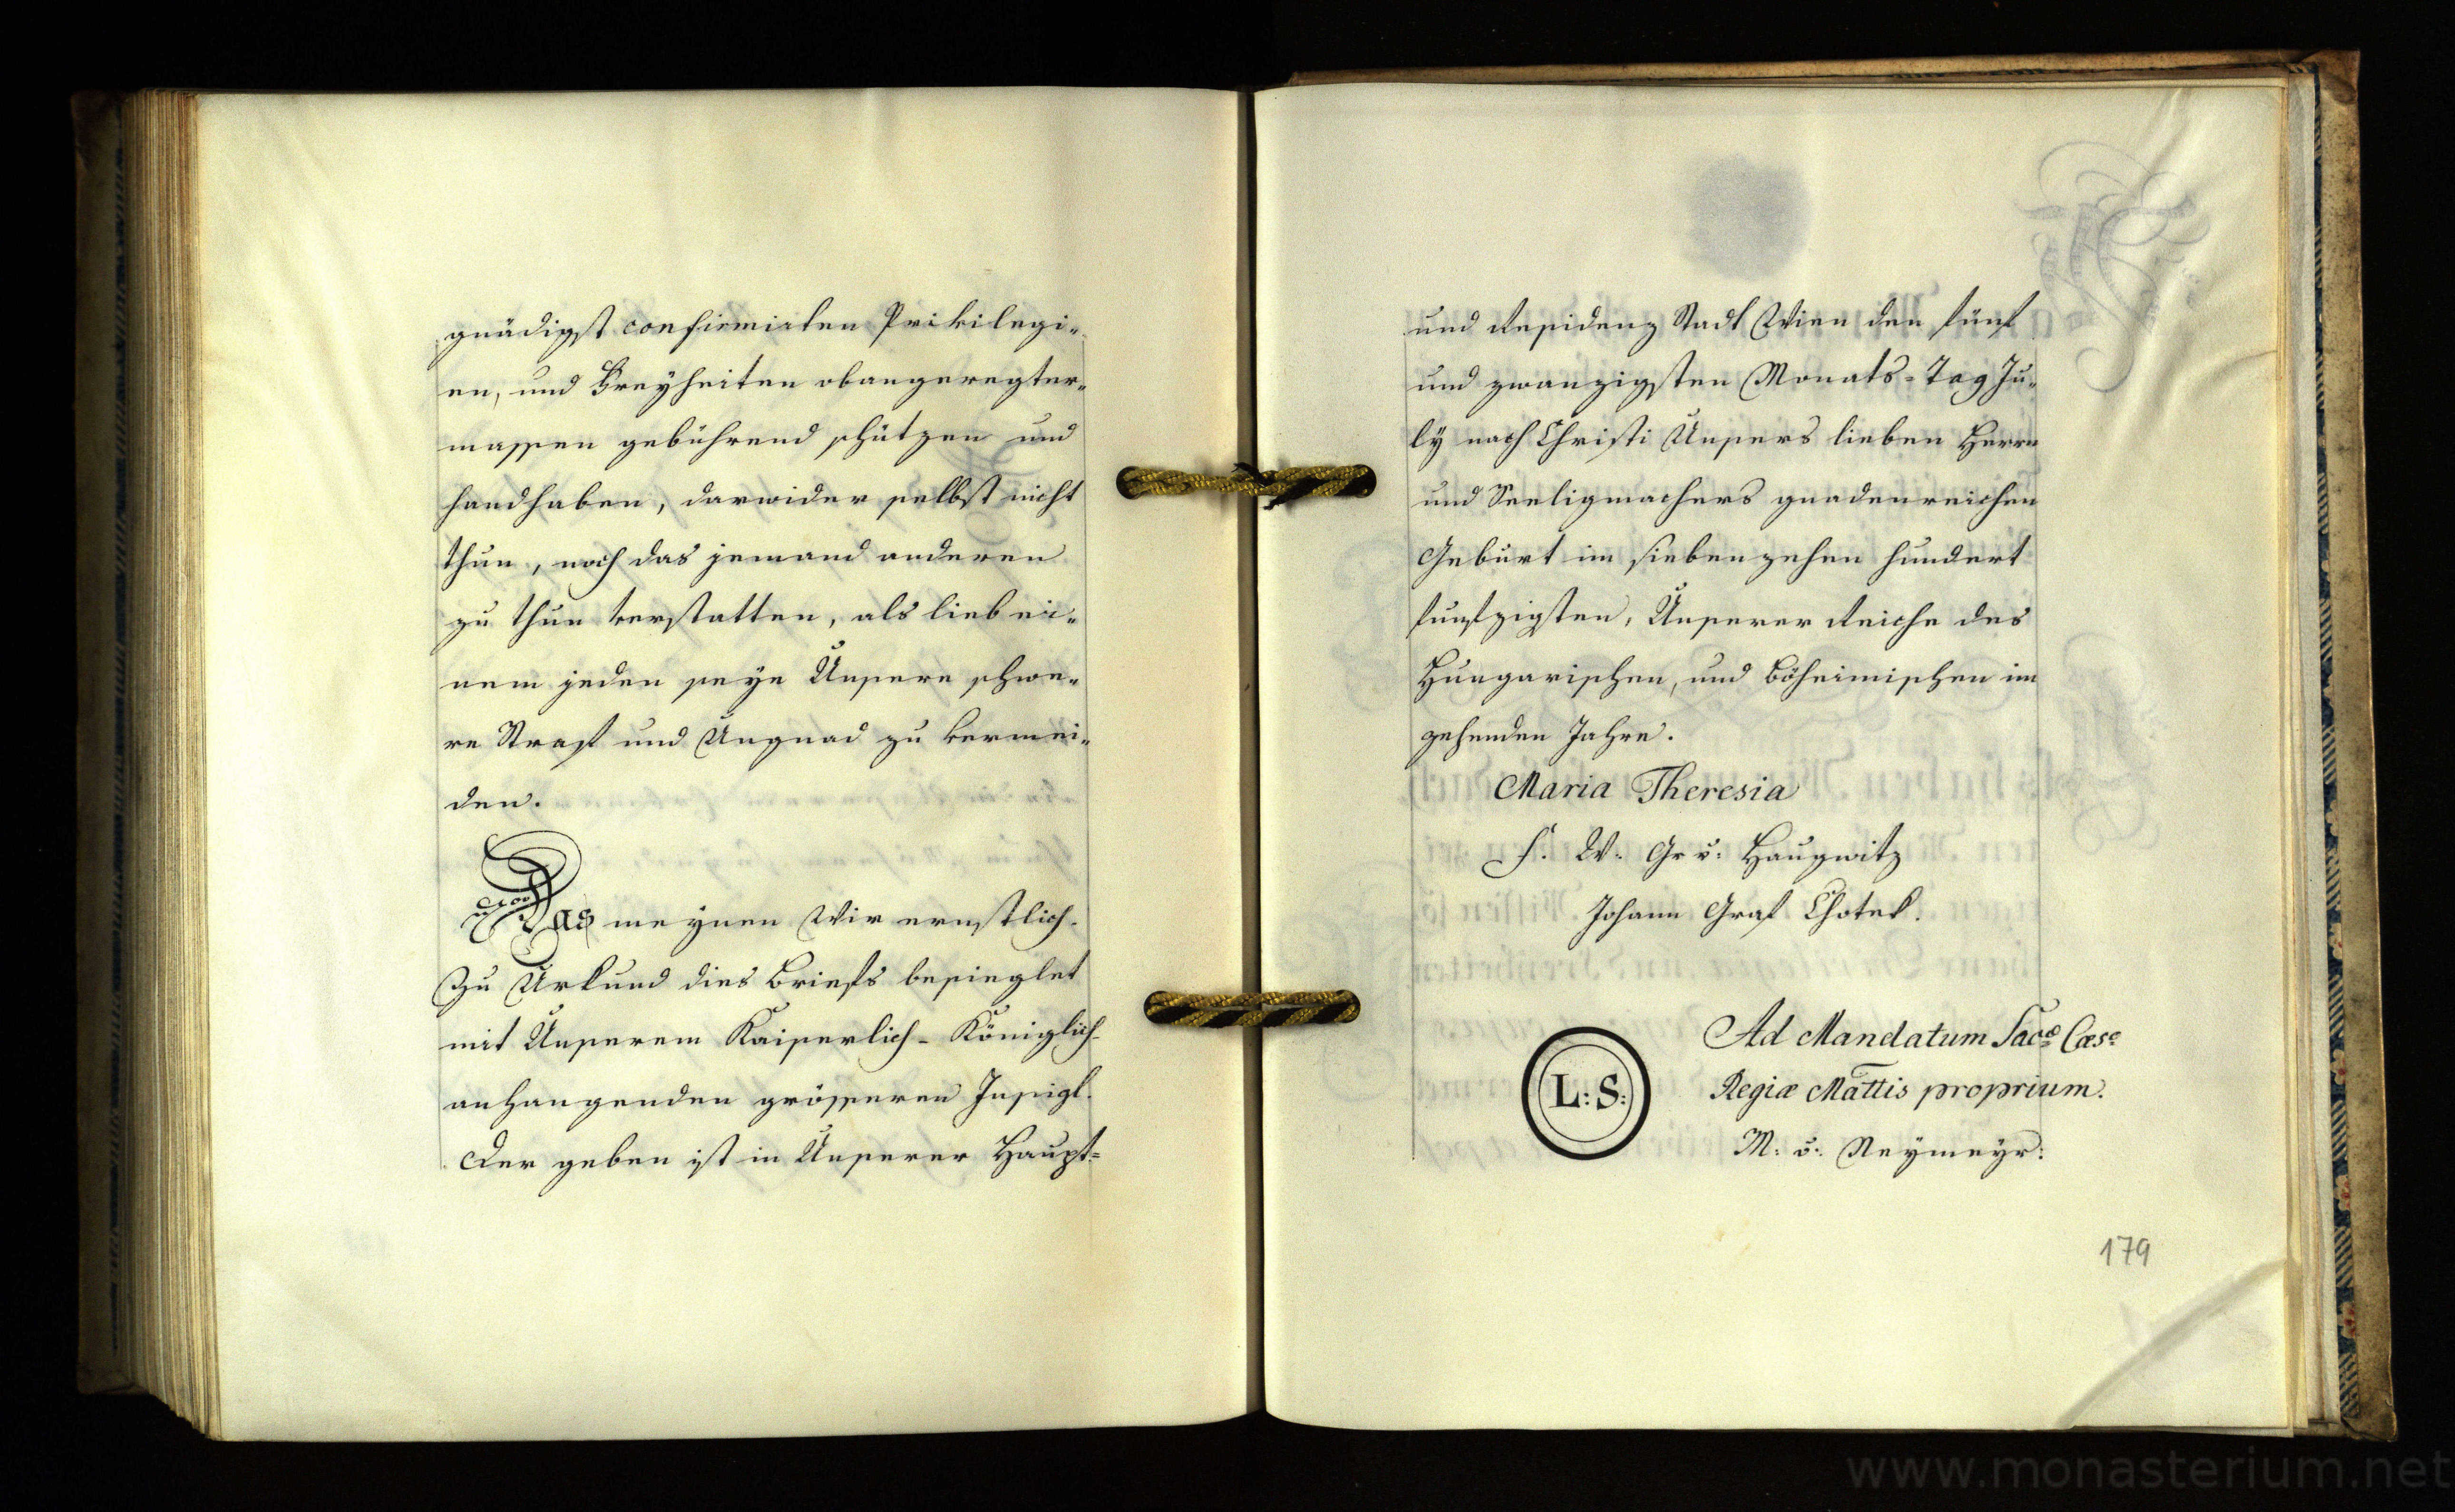 gnädigst confirmirten Privilegi-
en, und Freyheiten obangeregter-
massen gebührend schützen und
handhaben, darwider selbst nicht
thun, noch das jemand anderen
zu thun verstatten, als lieb ei-
nem jeden seye Unsere schwe-
re Straf und Ungnad zu vermei-
den.
Das meynen Wir ernstlich.
Zu Urkund dies Briefs besieglet
mit Unserem Kaiserlich-Königlich-
anhangenden grösseren Insigl.
Der geben ist in Unserer Haupt-
und Residenz Stadt Wien den fünf
und zwanzigsten Monats-Tag Ju-
ly nach Christi Unsers lieben Herrn
und Seeligmachers gnadenreichen
Geburt im siebenzehen hundert
funfzigsten, Unserer Reiche des
Hungarischen, und Böheimischen im
zehenden Jahre.
Maria Theresia
F. W. Gr v: Haugwitz
Johann Graf Chotek.
Ad Mandatum Sacæ Cæsæ
Regiæ Mattis proprium.
L: S:
M: v: Neymeyr:
179
www.monasterium.net